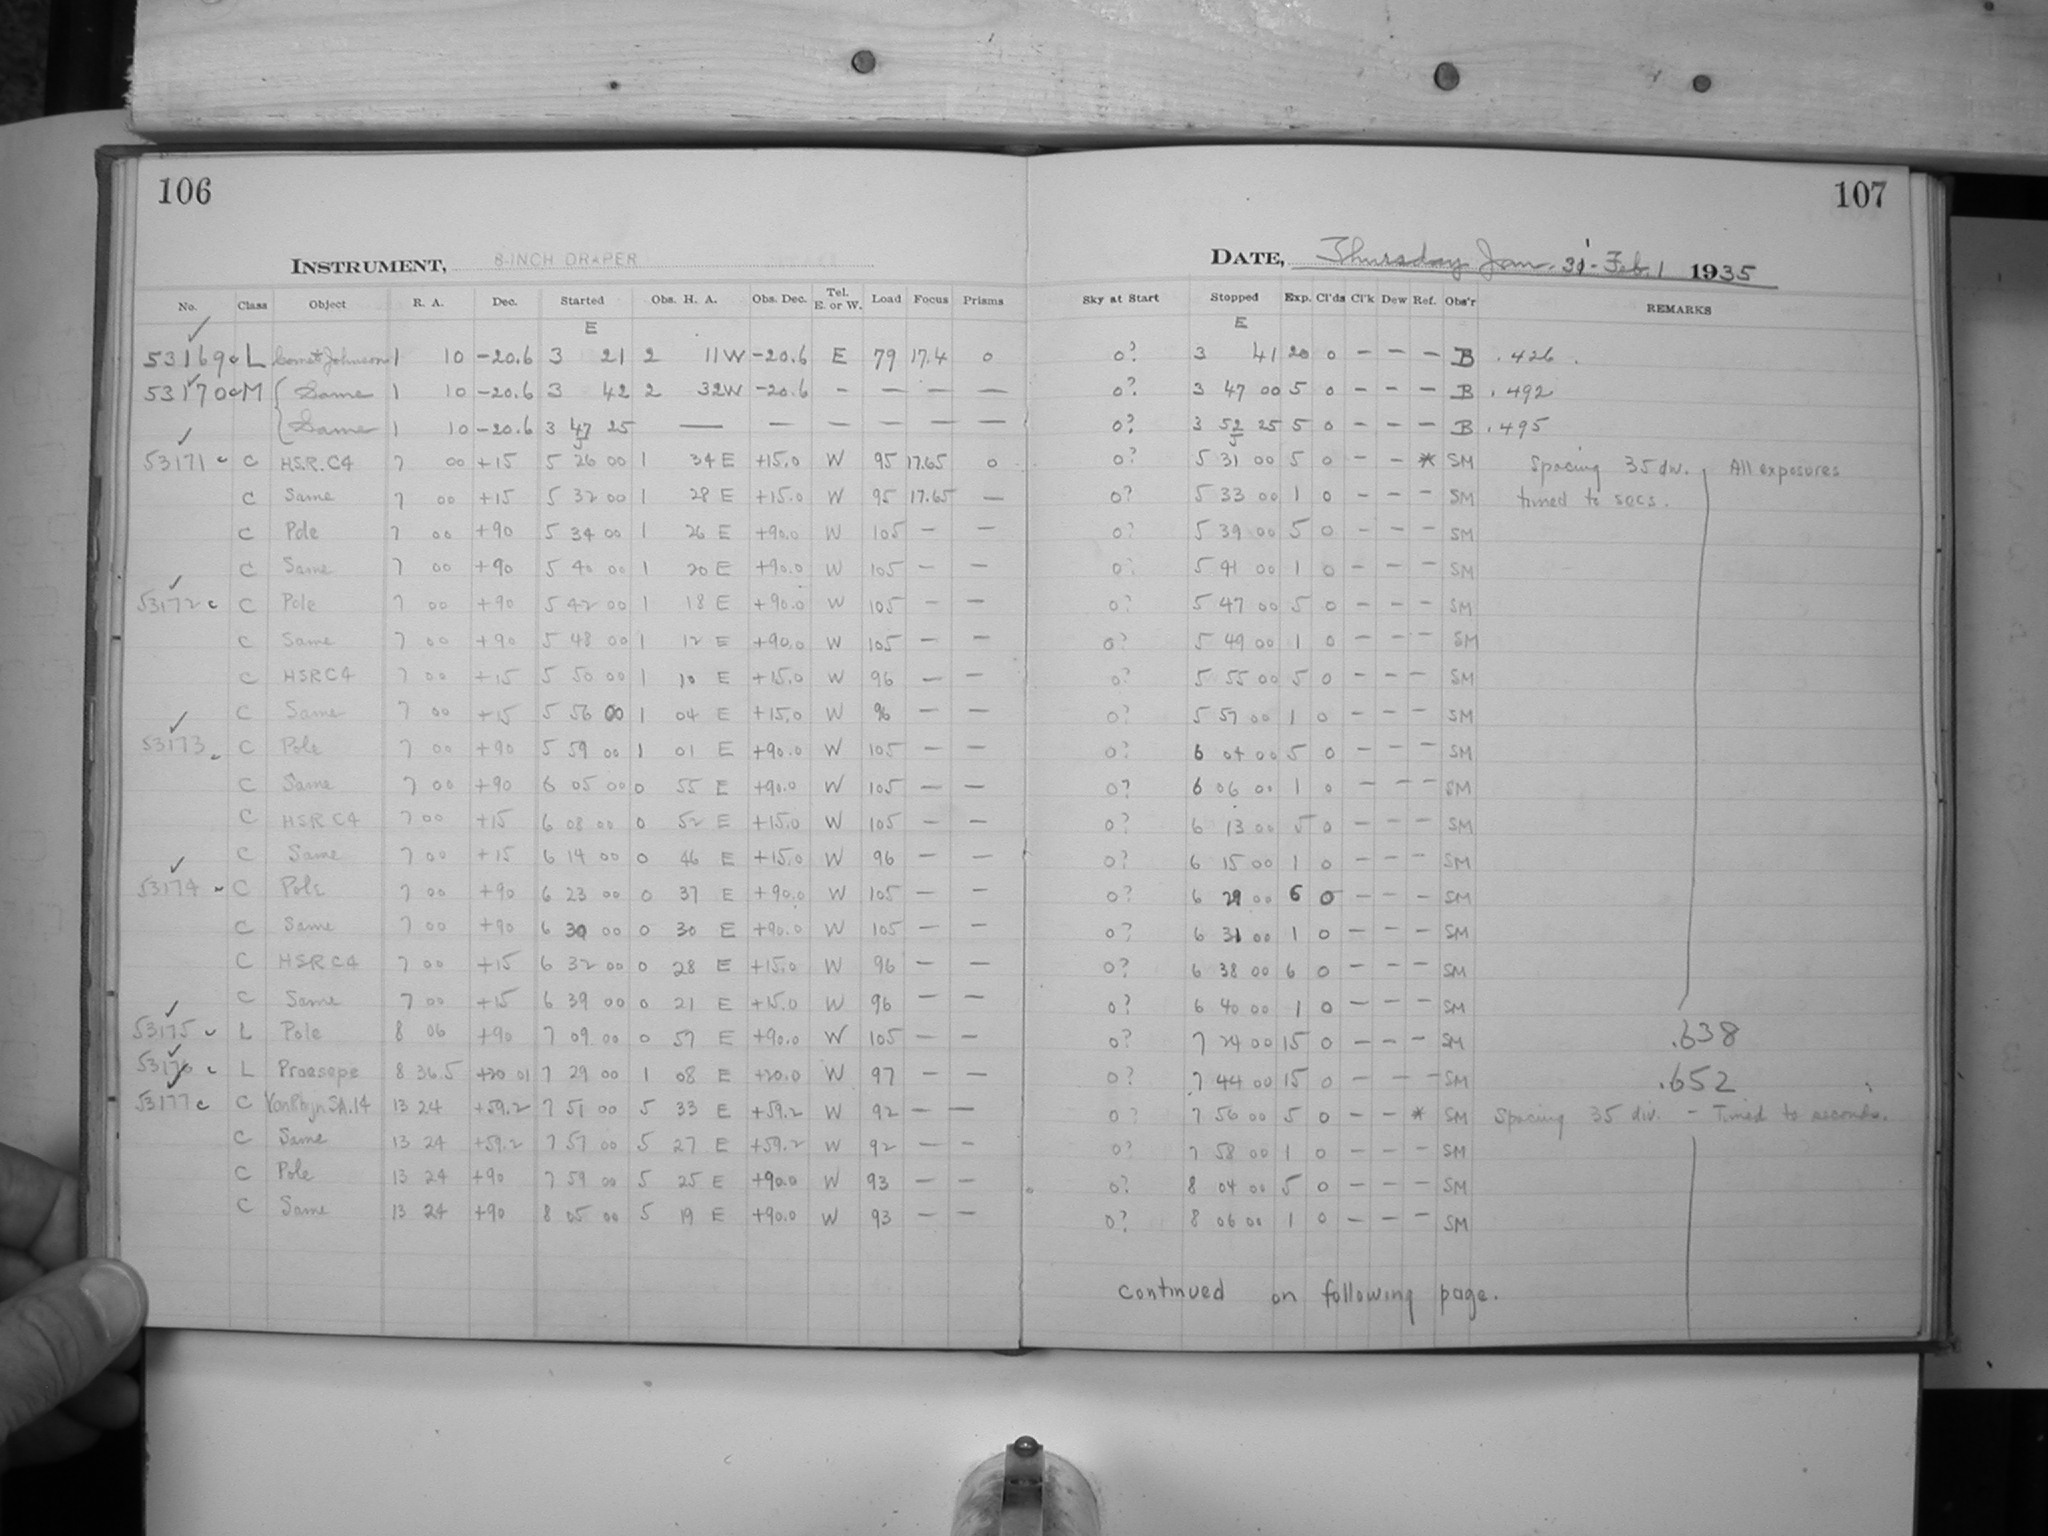 106
INSTRUMENT, 8-INCH DRAPER
No. Class Object R. A. Dec. Started Obs. H. A. Obs. Dec. Tel. E. or W. Load Focus Prisms
E
53169 c L Comet Johnson 1 10 -20.6 3 21 2 11 W -20.6 E 79 17.4 0
53170 c M Same 1 10 -20.6 3 42 2 32 W -20.6 - - - -
Same 1 10 -20.6 3 47 25 - - - - - -
53171 c C H.S.R. C4 7 00 +15 5 26 00 1 34 E +15.0 W 95 17.65 0
C Same 7 00 +15 5 32 00 1 28 E +15.0 W 95 17.65 -
C Pole 7 00 +90 5 34 00 1 26 E +90.0 W 105 - -
C Same 7 00 +90 5 40 00 1 20 E +90.0 W 105 - -
53172 c C Pole 7 00 +90 5 42 00 1 18 E +90.0 W 105 - -
C Same 7 00 +90 5 48 00 1 12 E +90.0 W 105 - -
C HSRC4 7 00 +15 5 50 00 1 10 E +15.0 W 96 - -
C Same 7 00 +15 5 56 00 1 04 E +15.0 W 96 - -
53173 c C Pole 7 00 +90 5 59 00 1 01 E +90.0 W 105 - -
C Same 7 00 +90 6 05 00 0 55 E +90.0 W 105 - -
C HSR C4 7 00 +15 6 08 00 0 52 E +15.0 W 105 - -
C Same 7 00 +15 6 14 00 0 46 E +15.0 W 96 - -
53174 c C Pole 7 00 +90 6 23 00 0 37 E +90.0 W 105 - -
C Same 7 00 +90 6 30 00 0 30 E +90.0 W 105 - -
C HSR C4 7 00 +15 6 32 00 0 28 E +15.0 W 96 - -
C Same 7 00 +15 6 39 00 0 21 E +15.0 W 96 - -
53175 c L Pole 8 06 +90 7 09 00 0 57 E +90.0 W 105 - -
53176 c L Praesepe 8 36.5 +20 01 7 29 00 1 08 E +20.0 W 97 - -
53177 c C VanRhijn SA.14 13 24 +59.2 7 51 00 5 33 E +59.2 W 92 - -
C Same 13 24 +59.2 7 57 00 5 27 E +59.2 W 92 - -
C Pole 13 24 +90 7 59 00 5 25 E +90.0 W 93 - -
C Same 13 24 +90 8 05 00 5 19 E +90.0 W 93 - -
107
DATE, Thursday Jan. 31 - Feb. 1 1935
Sky at Start Stopped Exp. Cl'ds Cl'k Dew Ref. Obs'r REMARKS
E
0? 3 41 20 0 - - - B .426
0? 3 47 00 5 0 - - - B .492
0? 3 52 25 5 0 - - - B .495
0? 5 31 00 5 0 - - * SM Spacing 35 div. All exposures
0? 5 33 00 1 0 - - - SM timed to secs.
0? 5 39 00 5 0 - - - SM
0? 5 41 00 1 0 - - - SM
0? 5 47 00 5 0 - - - SM
0? 5 49 00 1 0 - - - SM
0? 5 55 00 5 0 - - - SM
0? 5 57 00 1 0 - - - SM
0? 6 04 00 5 0 - - - SM
0? 6 06 00 1 0 - - - SM
0? 6 13 00 5 0 - - - SM
0? 6 15 00 1 0 - - - SM
0? 6 29 00 6 0 - - - SM
0? 6 31 00 1 0 - - - SM
0? 6 38 00 6 0 - - - SM
0? 6 40 00 1 0 - - - SM
0? 7 24 00 15 0 - - - SM .638
0? 7 44 00 15 0 - - - SM .652
0? 7 56 00 5 0 - - * SM Spacing 35 div. - Timed to seconds.
0? 7 58 00 1 0 - - - SM
0? 8 04 00 5 0 - - - SM
0? 8 06 00 1 0 - - - SM
continued on following page.